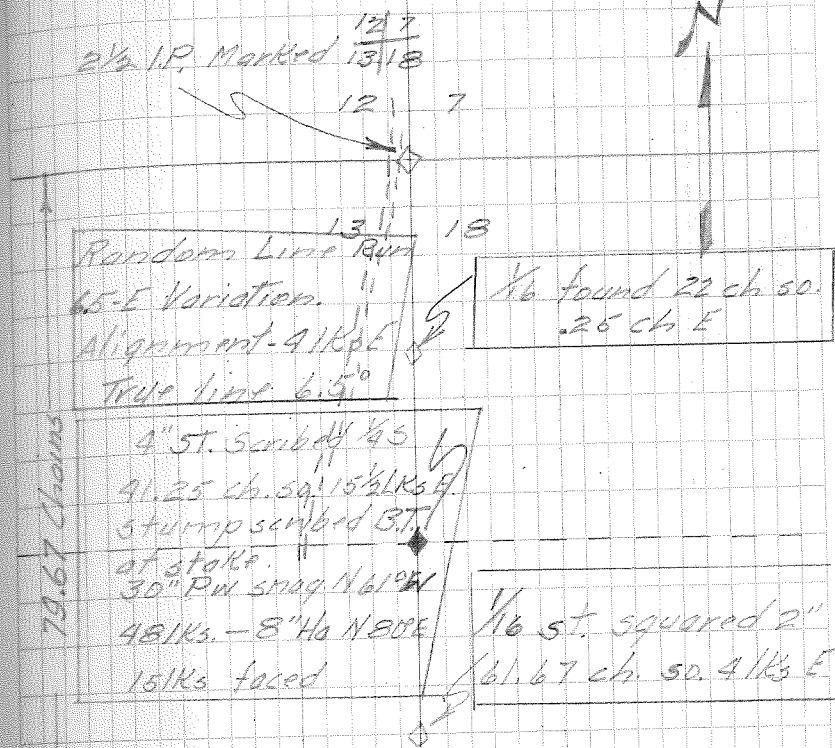 12 7
13 18
2½ I.P. Marked
N
12 7
13 18
Random Line Run
6.5-E Variation.
Alignment-41Ks E
True line 6.5°
1/16 found 22 ch so.
.26 ch E
79.67 Chains
4" ST. Scribed 1/4 S
41.25 ch. so. 15½ LKs E.
stump scribed B.T.
at stake.
30" PW snag N 61° W
481Ks. - 8" Ho N 80° E
151Ks faced
1/16 st. squared 2"
61.67 ch. so. 41Ks E